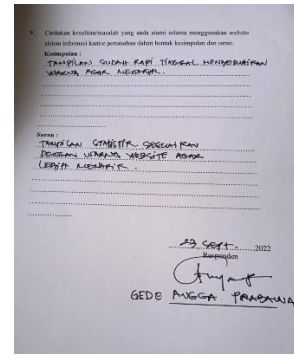 V. Ceritakan kesulitan/masalah yang anda alami selama menggunakan website
sistem informasi kantor pertanahan dalam bentuk kesimpulan dan saran.
Kesimpulan :
TAMPILAN SUDAH RAPI TINGGAL MENYESUAIKAN
WARNA AGAR MENARIK.
Saran :
TAMPILAN STATISTIK SESUAIKAN
DENGAN WARNA WEBSITE AGAR
LEBIH MENARIK.
23 SEPT. 2022
Responden
GEDE ANGGA PRABAWA